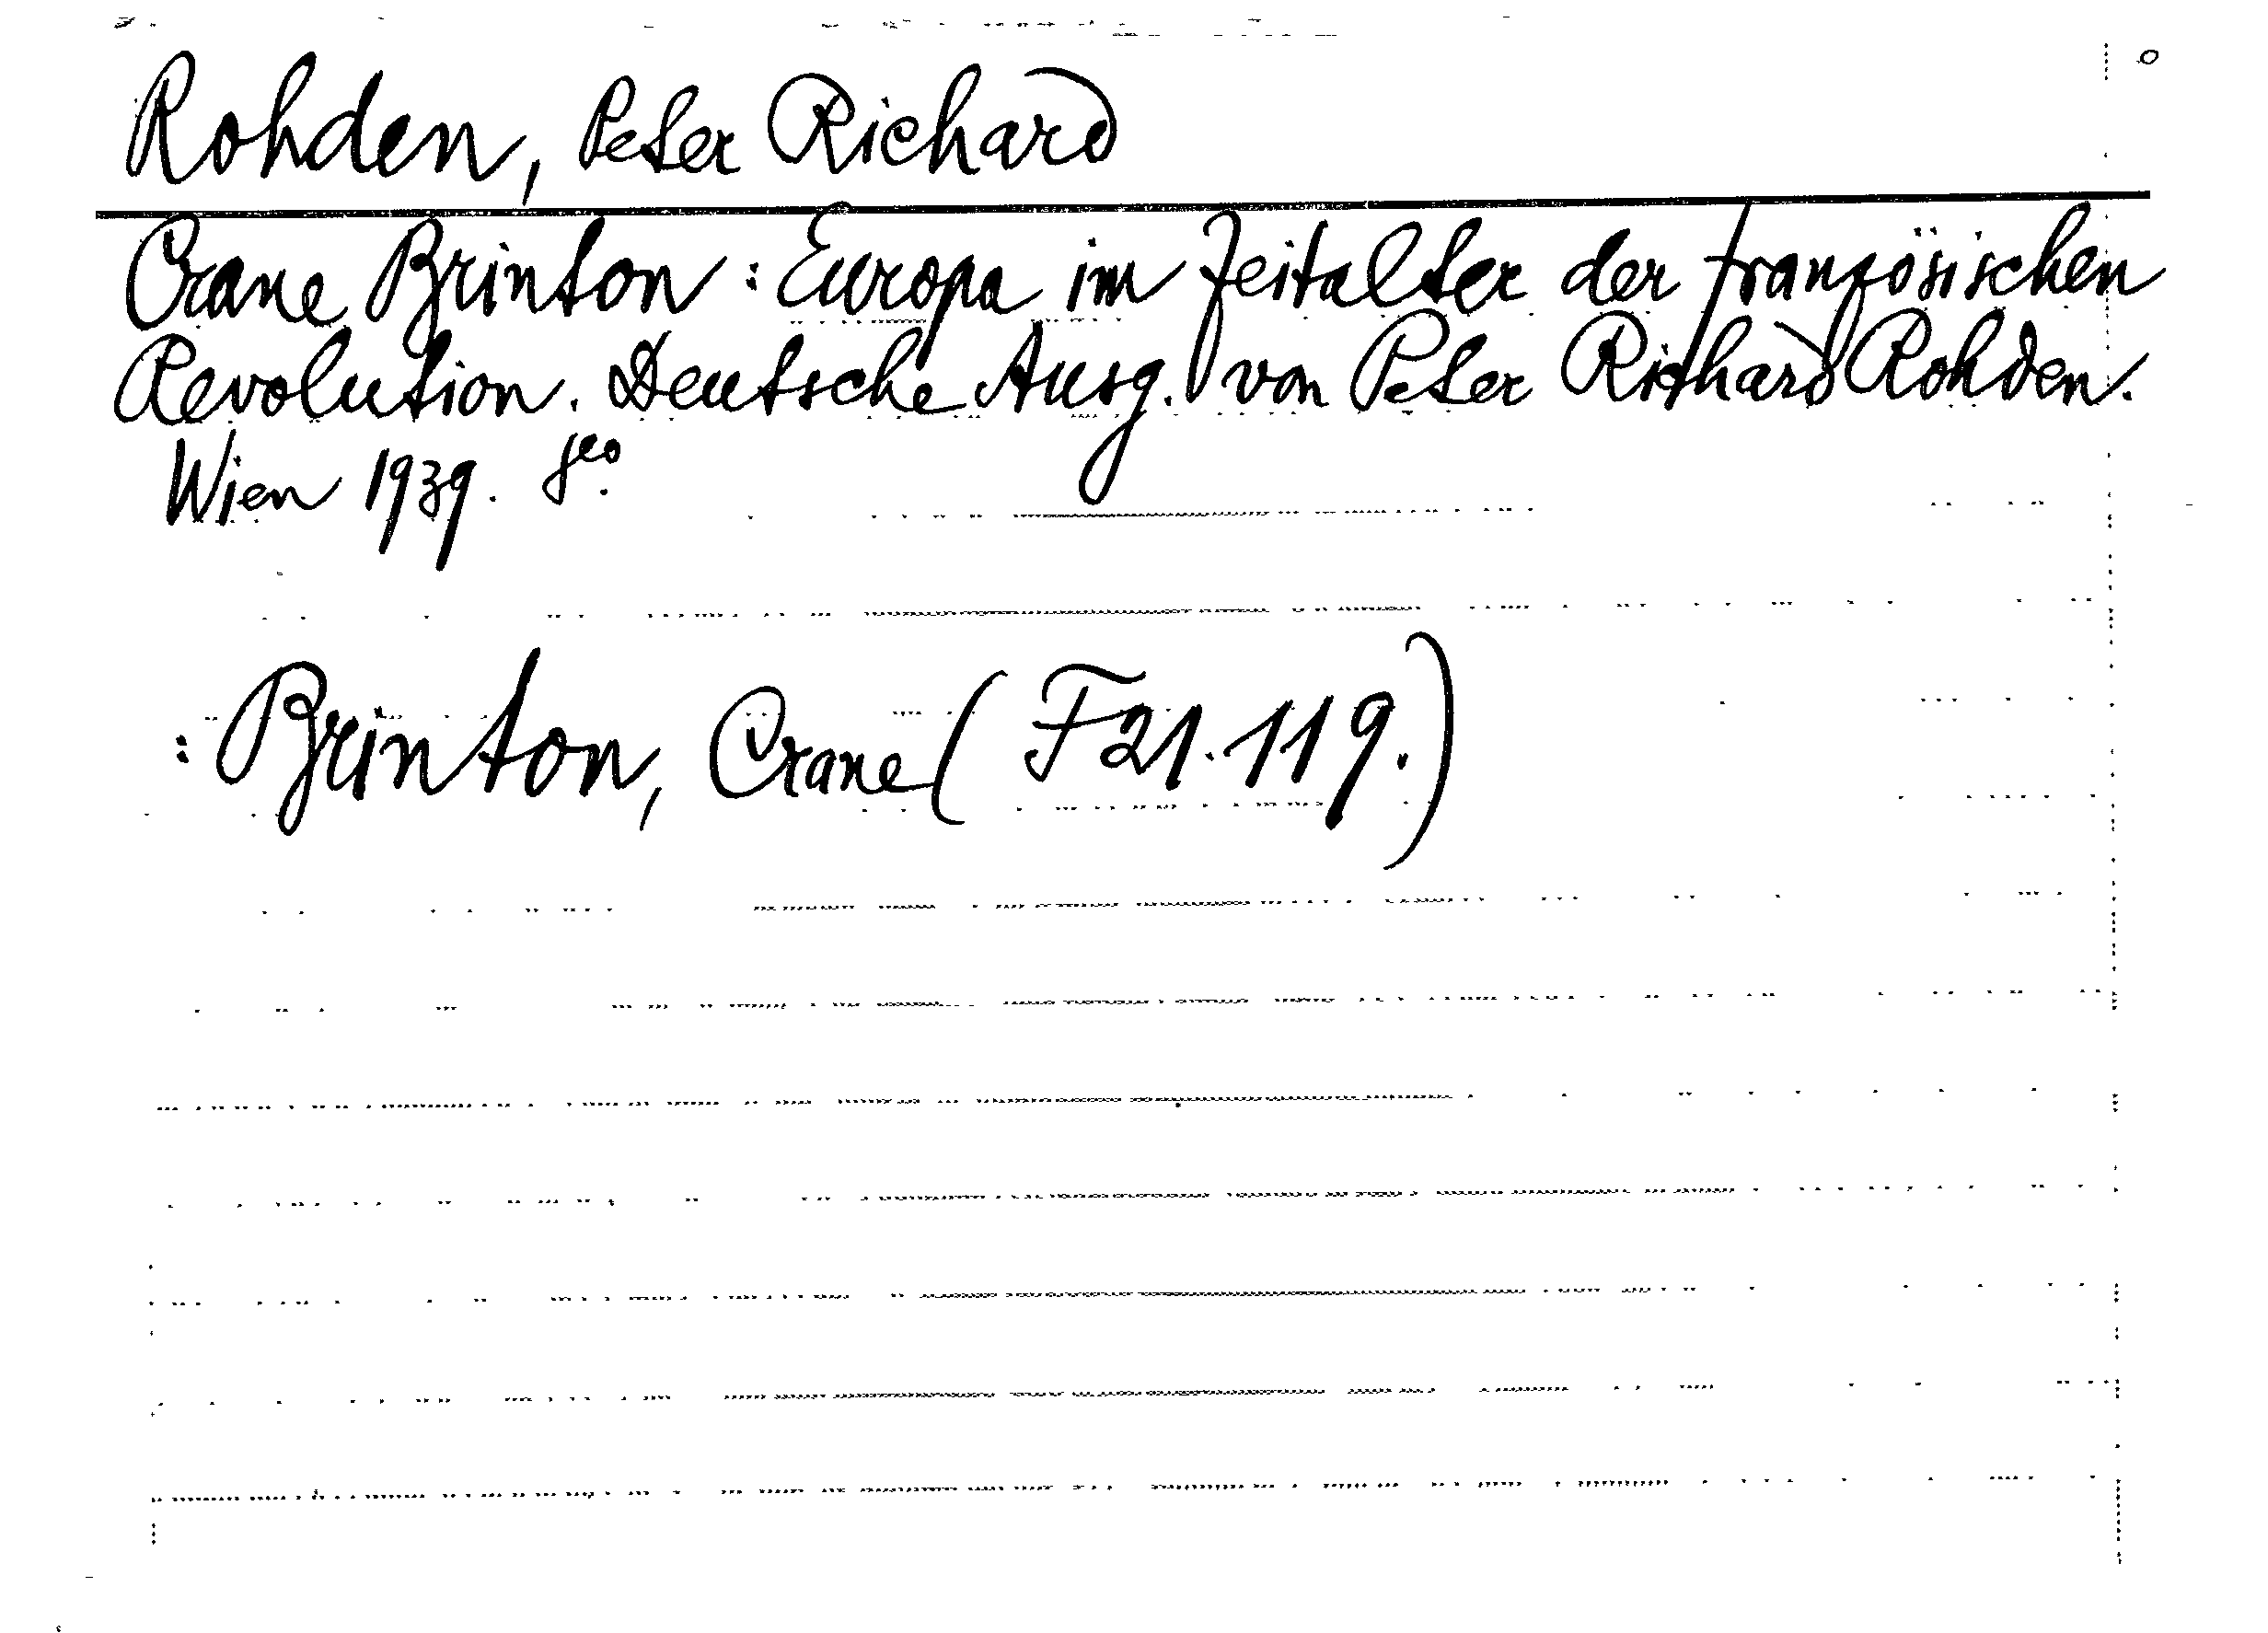 Rohden, Peter Richard
Crane Brinton: Europa im Zeitalter der französischen
Revolution. Deutsche Ausg. von Peter Richard Rohden.
Wien 1939. 8°.
: Brinton, Crane (F21.119.)